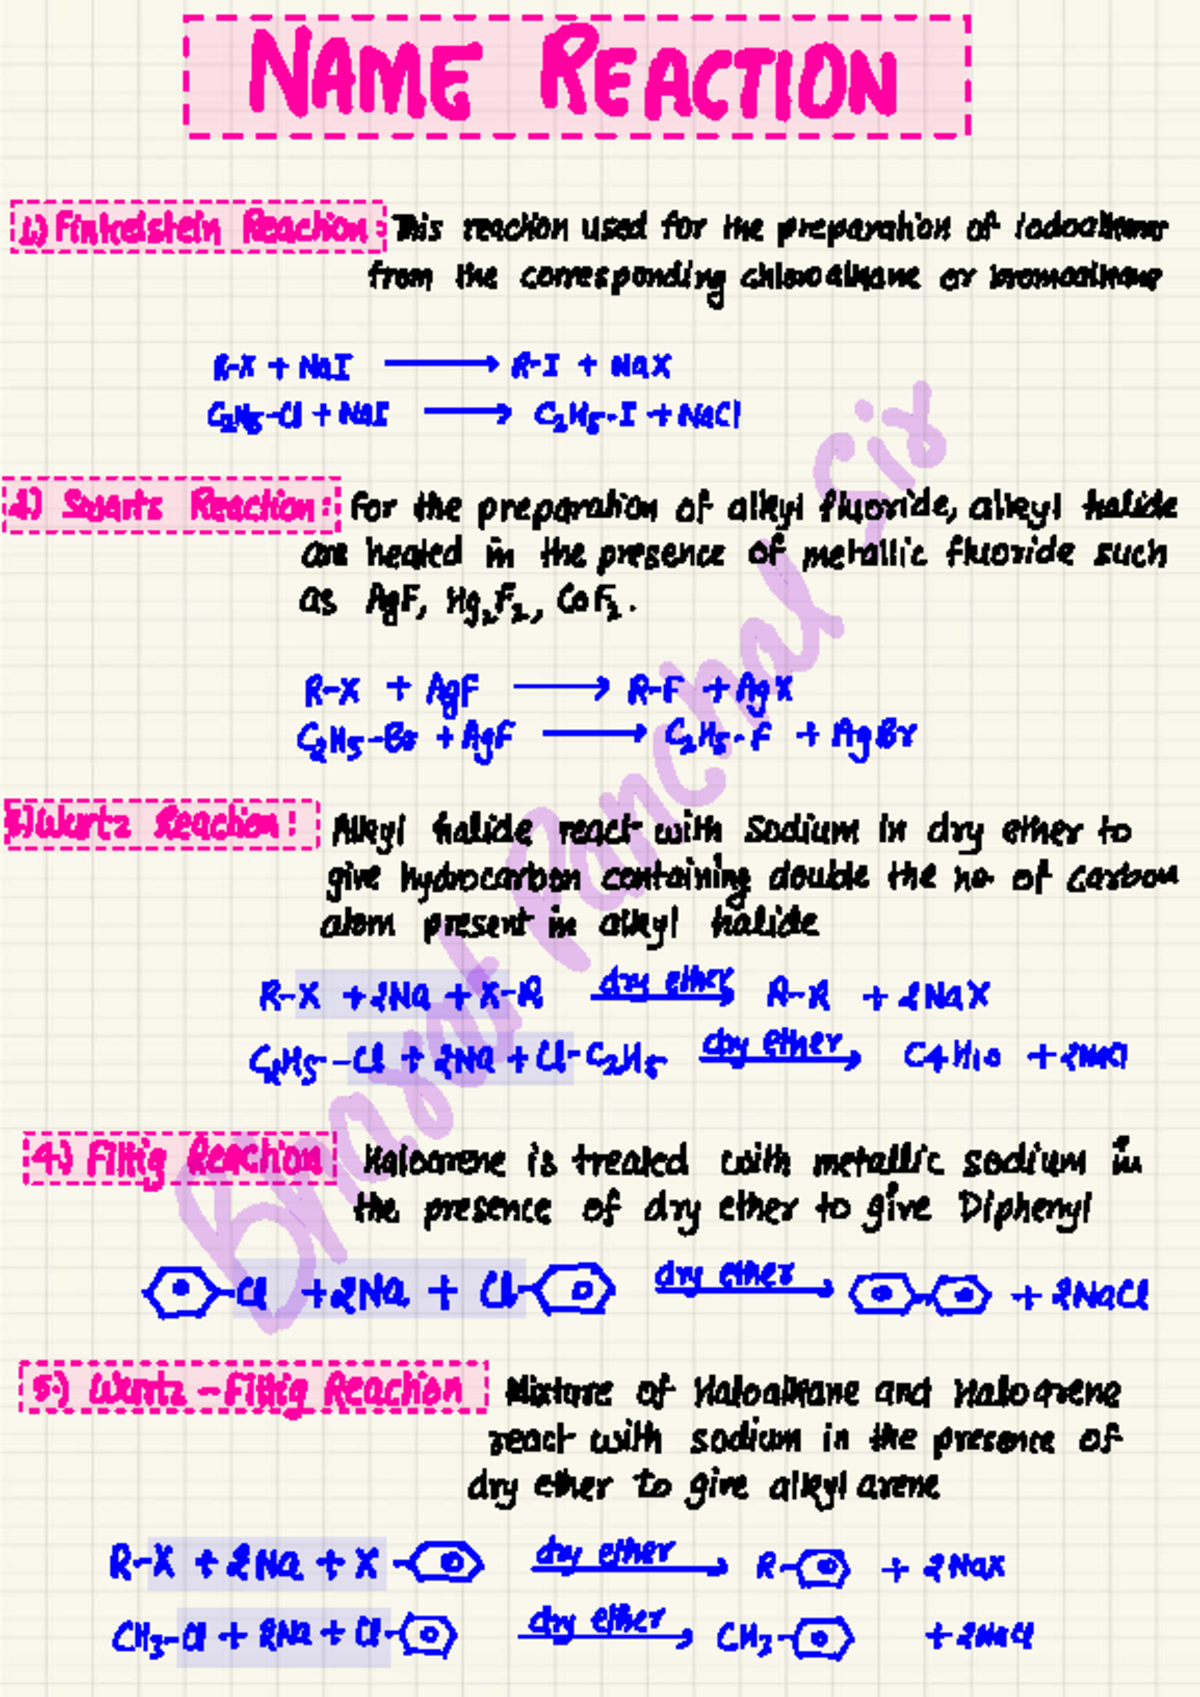 NAME REACTION
1) Finkelstein Reaction: This reaction used for the preparation of iodoalkane
from the corresponding chloroalkane or bromoalkane
R-X + NaI ⟶ R-I + NaX
C₂H₅-Cl + NaI ⟶ C₂H₅-I + NaCl
2) Swarts Reaction: For the preparation of alkyl fluoride, alkyl halide
are heated in the presence of metallic fluoride such
as AgF, Hg₂F₂, CoF₂.
R-X + AgF ⟶ R-F + AgX
C₂H₅-Br + AgF ⟶ C₂H₅-F + AgBr
3) Wurtz Reaction: Alkyl halide react with sodium in dry ether to
give hydrocarbon containing double the no. of carbon
atom present in alkyl halide
R-X + 2Na + X-R dry ether ⟶ R-R + 2NaX
C₂H₅-Cl + 2Na + Cl-C₂H₅ dry ether ⟶ C4H10 + 2NaCl
4) Fittig Reaction Haloarene is treated with metallic sodium in
the presence of dry ether to give Diphenyl
Cl + 2Na + Cl dry ether ⟶ + 2NaCl
5) Wurtz-Fittig Reaction Mixture of Haloalkane and Haloarene
react with sodium in the presence of
dry ether to give alkyl arene
R-X + 2Na + X dry ether ⟶ R- + 2NaX
CH₃-Cl + 2Na + Cl- dry ether ⟶ CH₃- + 2NaCl
Bharat Panchal Sir